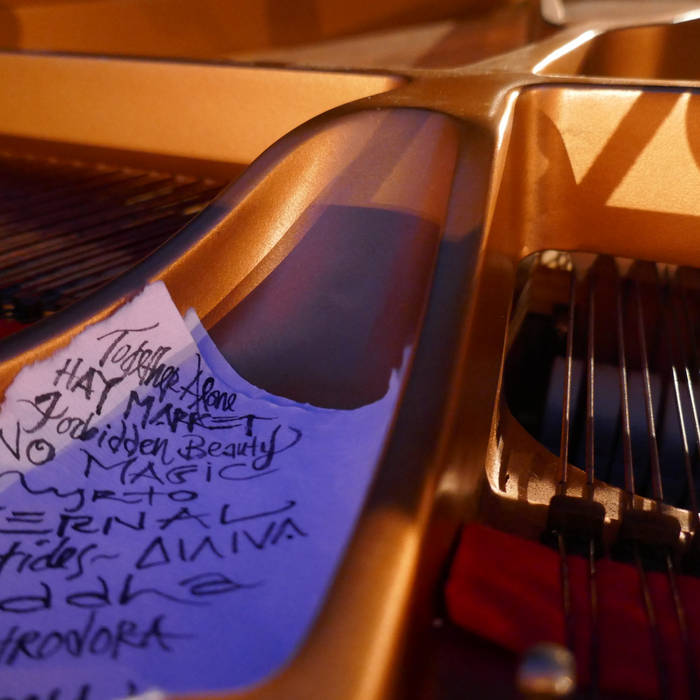 Together Alone
HAY MARKET
Forbidden Beauty
NO MAGIC
Myrto
ERNAL
tides~ ΔΙΛΙVΑ
addha
TRODORA